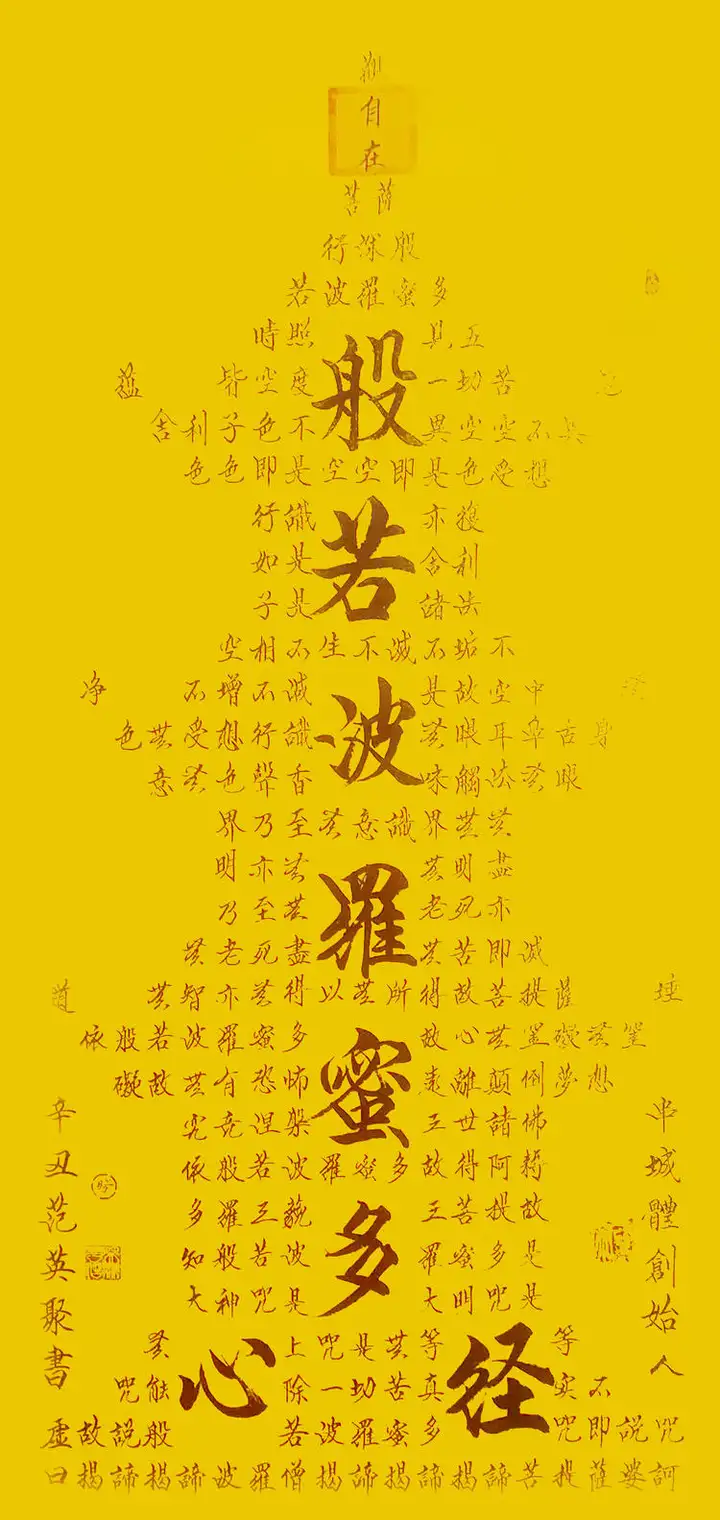 觀
自
在
菩薩
行深般
若波羅蜜多
時照見五
蘊皆空度一切苦厄
舍利子色不異空空不異
色色即是空空即是色受想
行識亦復
如是舍利
子是諸法
空相不生不滅不垢不
净不增不減是故空中無
色無受想行識無眼耳鼻舌身
意無色聲香味觸法無眼
界乃至無意識界無無
明亦無無明盡
乃至無老死亦
無老死盡無苦即滅
道無智亦無得以無所得故菩提薩埵
依般若波羅蜜多故心無罣礙無罣
礙故無有恐怖遠離顛倒夢想
究竟涅槃三世諸佛
依般若波羅蜜多故得阿耨
多羅三藐三菩提故
知般若波羅蜜多是
大神咒是大明咒是
無上咒是無等等
咒能除一切苦真實不
虛故說般若波羅蜜多咒即說咒
曰揭諦揭諦波羅僧揭諦揭諦揭諦菩提薩婆訶
般若波羅蜜多心经
串城體創始人
辛丑范英聚書